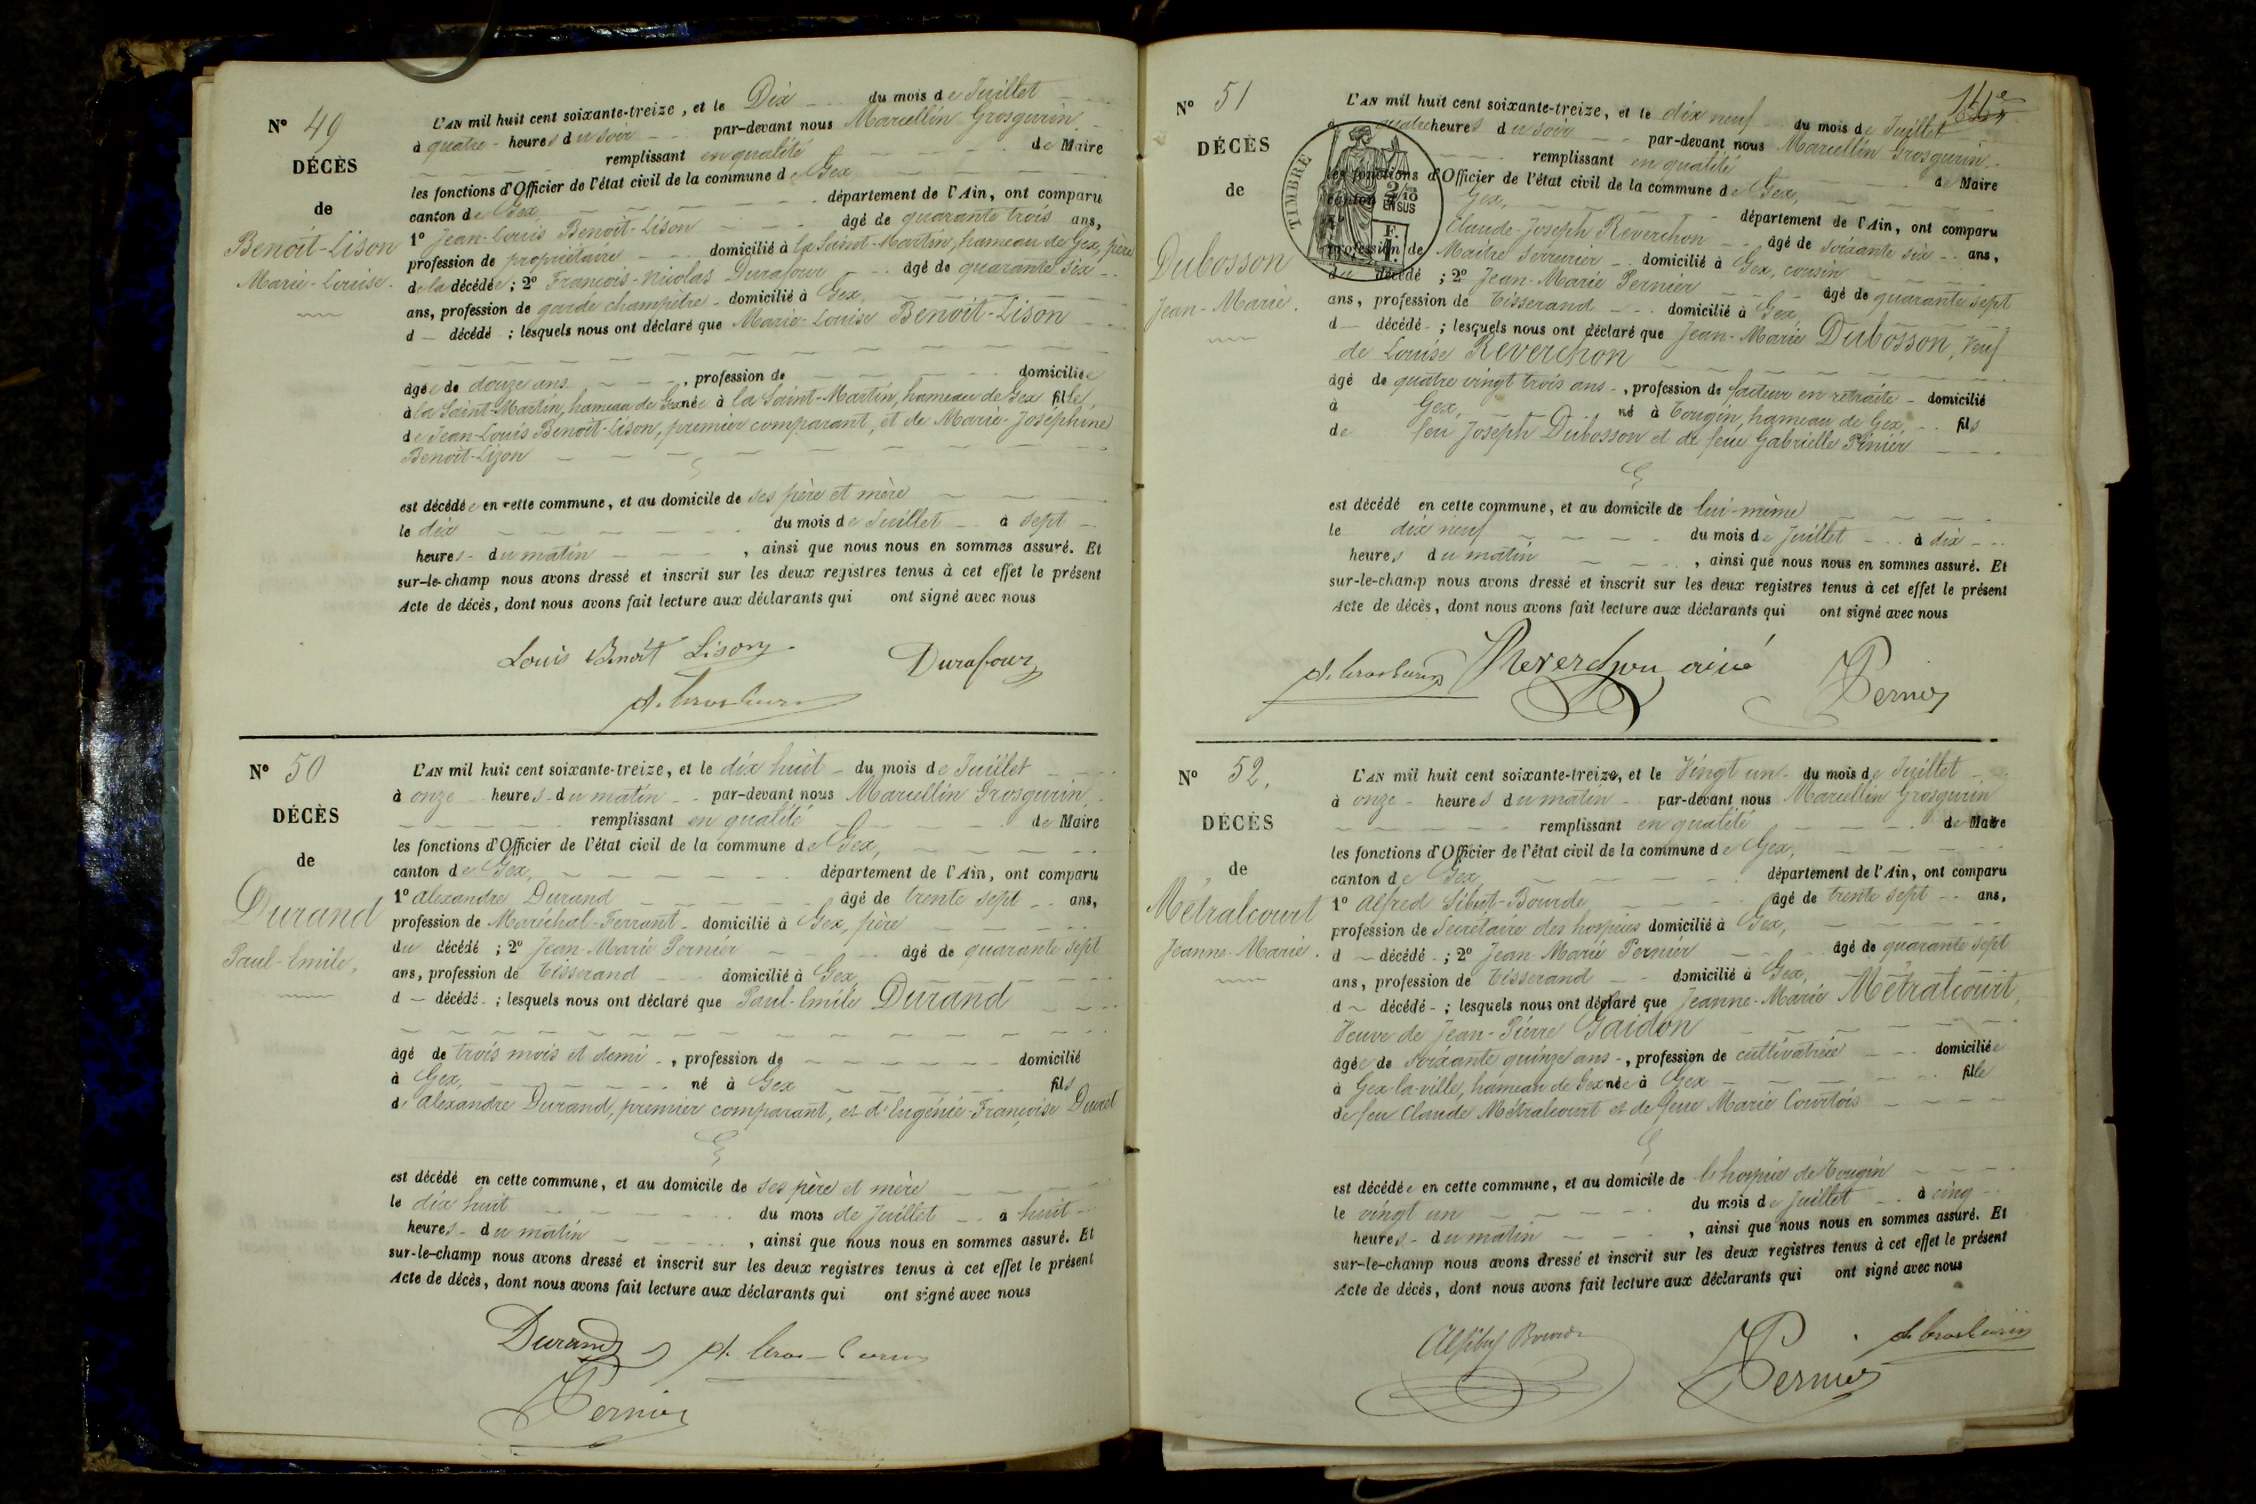 N° 49
DÉCÈS
de
Benoit-Lison
Marie-Louise.
L'AN mil huit cent soixante-treize, et le Dix du mois de Juillet
à quatre heures du soir par-devant nous Marcellin Grosgurin
remplissant en qualité de Maire
les fonctions d'Officier de l'état civil de la commune de Gex
canton de Gex, département de l'Ain, ont comparu
1° Jean-Louis Benoit-Lison âgé de quarante trois ans,
profession de propriétaire domicilié à la Saint-Martin, hameau de Gex, père
de la décédée; 2° François-Nicolas Durafour âgé de quarante six
ans, profession de garde champêtre domicilié à Gex,
d décédé ; lesquels nous ont déclaré que Marie-Louise Benoit-Lison
âgée de douze ans, profession de domiciliée
à la Saint-Martin, hameau de Gex née à la Saint-Martin, hameau de Gex fille
de Jean-Louis Benoit-Lison, premier comparant, et de Marie-Joséphine
Benoit-Lizon
est décédée en cette commune, et au domicile de ses père et mère
le dix du mois de Juillet à sept
heures du matin, ainsi que nous nous en sommes assuré. Et
sur-le-champ nous avons dressé et inscrit sur les deux registres tenus à cet effet le présent
Acte de décès, dont nous avons fait lecture aux déclarants qui ont signé avec nous
Louis Benoit Lison
Durafour
N° 50
DÉCÈS
de
Durand
Paul-Emile,
L'AN mil huit cent soixante-treize, et le dix huit du mois de Juillet
à onze heures du matin par-devant nous Marcellin Grosgurin
remplissant en qualité de Maire
les fonctions d'Officier de l'état civil de la commune de Gex,
canton de Gex, département de l'Ain, ont comparu
1° Alexandre Durand âgé de trente sept ans,
profession de Maréchal-Ferrant domicilié à Gex, père
du décédé ; 2° Jean-Marie Pernier âgé de quarante sept
ans, profession de Tisserand domicilié à Gex,
d décédé ; lesquels nous ont déclaré que Paul-Emile Durand
âgé de trois mois et demi, profession de domicilié
à Gex, né à Gex fils
de Alexandre Durand, premier comparant, et d'Eugénie Françoise
est décédé en cette commune, et au domicile de ses père et mère
le dix huit du mois de Juillet à huit
heures du matin, ainsi que nous nous en sommes assuré. Et
sur-le-champ nous avons dressé et inscrit sur les deux registres tenus à cet effet le présent
Acte de décès, dont nous avons fait lecture aux déclarants qui ont signé avec nous
Durand
Pernier
N° 51
DÉCÈS
de
Dubosson
Jean-Marie.
TIMBRE
2/10
EN SUS
L'AN mil huit cent soixante-treize, et le dix neuf du mois de Juillet
à quatre heures du soir par-devant nous Marcellin Grosgurin
remplissant en qualité de Maire
les fonctions d'Officier de l'état civil de la commune de Gex,
canton de Gex, département de l'Ain, ont comparu
1° Claude-Joseph Reverchon âgé de soixante six ans,
profession de Maître Serrurier domicilié à Gex, cousin
du décédé ; 2° Jean-Marie Pernier âgé de quarante sept
ans, profession de Tisserand domicilié à Gex,
d décédé ; lesquels nous ont déclaré que Jean-Marie Dubosson, Veuf
de Louise Reverchon
âgé de quatre vingt trois ans, profession de facteur en retraite domicilié
à Gex, né à Tougin, hameau de Gex, fils
de feu Joseph Dubosson et de feue Gabrielle
est décédé en cette commune, et au domicile de lui-même
le dix neuf du mois de Juillet à dix
heures du matin, ainsi que nous nous en sommes assuré. Et
sur-le-champ nous avons dressé et inscrit sur les deux registres tenus à cet effet le présent
Acte de décès, dont nous avons fait lecture aux déclarants qui ont signé avec nous
Reverchon ainé
Pernier
N° 52.
DÉCÈS
de
Métralcourt
Jeanne-Marie.
L'AN mil huit cent soixante-treize, et le Vingt un du mois de Juillet
à onze heures du matin par-devant nous Marcellin Grosgurin
remplissant en qualité de Maire
les fonctions d'Officier de l'état civil de la commune de Gex,
canton de Gex, département de l'Ain, ont comparu
1° Alfred Sibut-Bourde âgé de trente sept ans,
profession de Secrétaire des hospices domicilié à Gex,
d décédé ; 2° Jean-Marie Pernier âgé de quarante sept
ans, profession de Tisserand domicilié à Gex,
d décédé ; lesquels nous ont déclaré que Jeanne-Marie Métralcourt,
Veuve de Jean-Pierre Gaidon
âgée de soixante quinze ans, profession de cultivatrice domiciliée
à Gex-la-ville, hameau de Gex née à Gex fille
de feu Claude Métralcourt et de feue Marie Courtois
est décédée en cette commune, et au domicile de l'hospice de Tougin
le vingt un du mois de Juillet à cinq
heures du matin, ainsi que nous nous en sommes assuré. Et
sur-le-champ nous avons dressé et inscrit sur les deux registres tenus à cet effet le présent
Acte de décès, dont nous avons fait lecture aux déclarants qui ont signé avec nous
Pernier